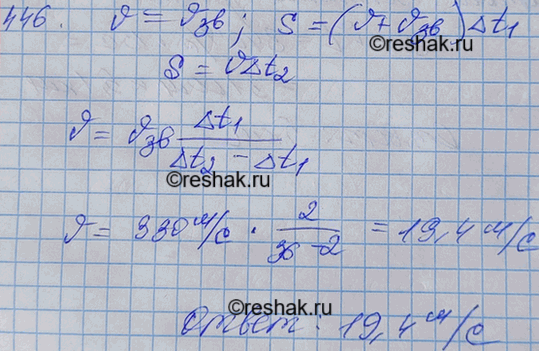 446. υ = υзв; S = (υ + υзв)Δt1
©reshak.ru
S = υΔt2
υ = υзв Δt1 / (Δt2 - Δt1)
©reshak.ru
υ = 330 м/с · 2 / (36 - 2) = 19,4 м/с
©reshak.ru
Ответ: 19,4 м/с